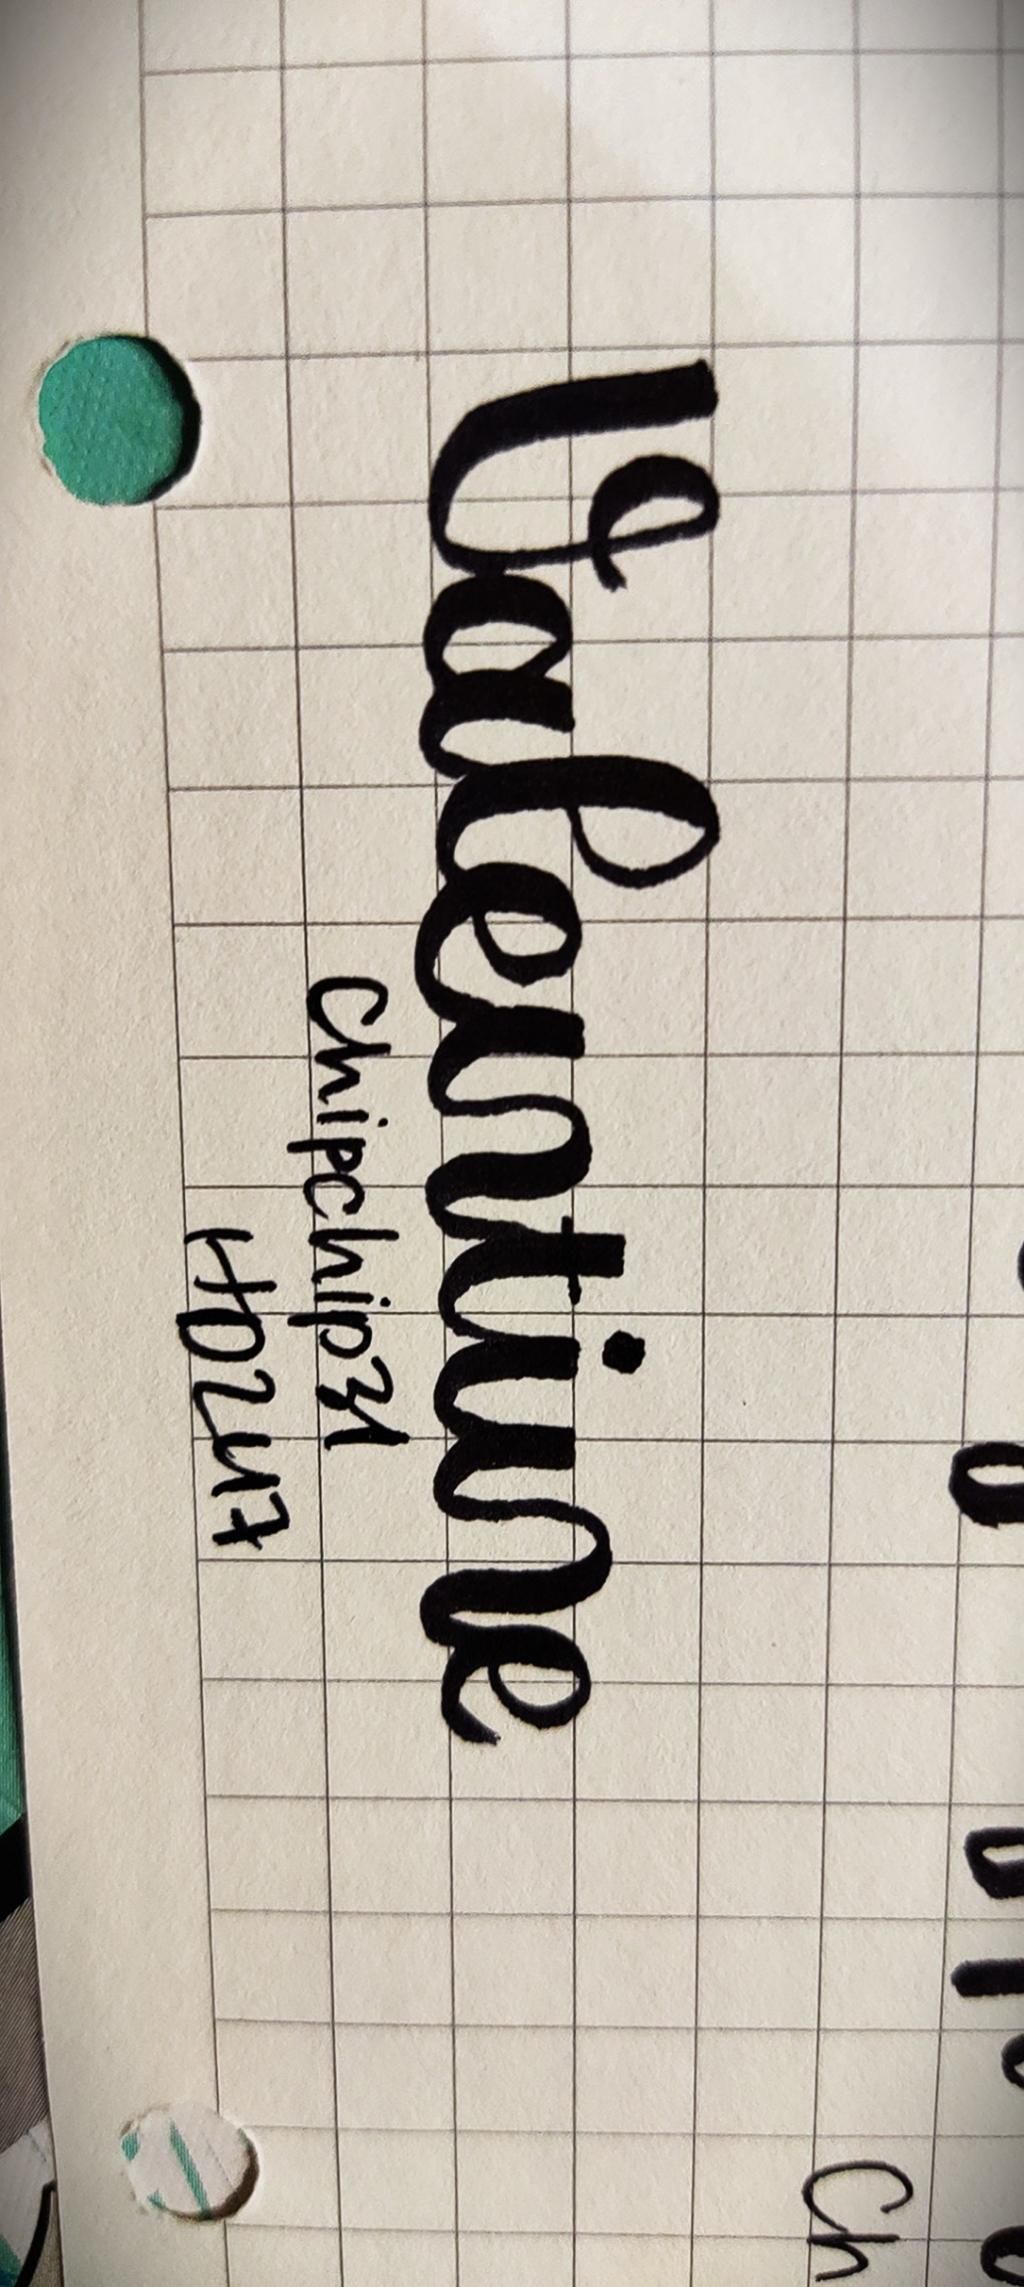 Valentine
Chipchip31
HD2417
Ch